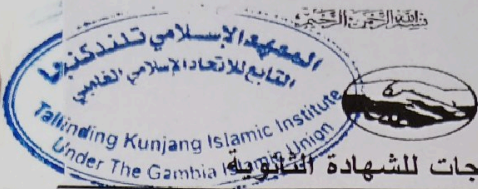 بسم الله الرحمن الرحيم
المعهد الإسلامي تلندكنجا
التابع للاتحاد الإسلامي الغامبي
Tallinding Kunjang Islamic Institute
Under The Gambia Islamic Union
جات للشهادة الثانوية